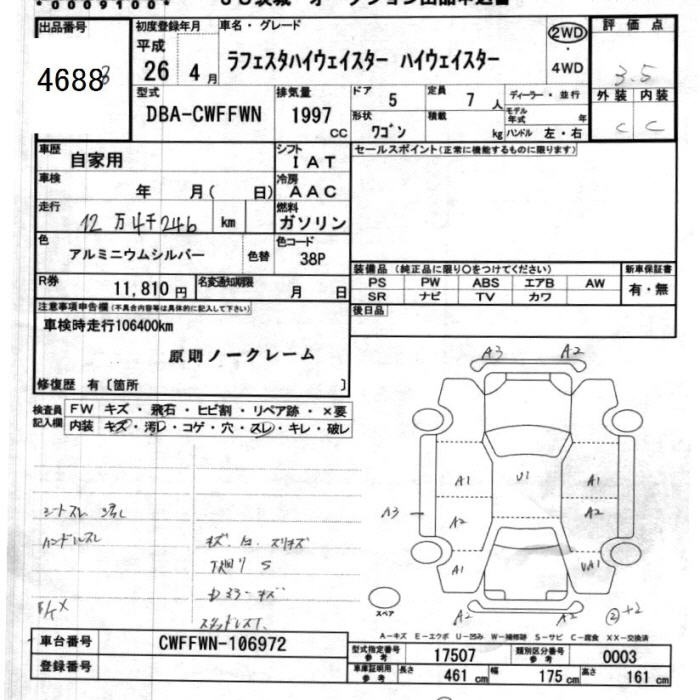 *0009100*
出品番号 初度登録年月 車名・グレード 2WD 評価点
平成 26 4 月 ラフェスタハイウェイスター ハイウェイスター ・ 3.5
4WD
4688
型式 排気量 ドア 5 定員 7 人 ディーラー・並行 外装 内装
DBA-CWFFWN 1997 cc 形状 ワゴン 積載 kg モデル年式 年 C C
ハンドル 左・右
車歴 自家用 シフト IAT セールスポイント(正常に機能するものに限ります)
車検 年 月( 日) 冷房 AAC
走行 12万4千246 km 燃料 ガソリン
色 アルミニウムシルバー 色替 色コード 38P
装備品 (純正品に限り○をつけてください) 新車保証書
R券 11,810円 名変通知期限 月 日 PS PW ABS エアB AW 有・無
SR ナビ TV カワ
注意事項申告欄(不具合内容等は具体的に記入して下さい) 後日品
車検時走行106400km
原則ノークレーム
修復歴 有〔箇所 〕
検査員記入欄 FW キズ・飛石・ヒビ割・リペア跡・×要
内装 キズ・汚レ・コゲ・穴・スレ・キレ・破レ
A3 A2
A1 U1 A1
A3 A2 A2
シートスレ
ハンドルスレ
A1 UA1
下廻り S
スペア
A2 A2
②+2
A-キズ E-エクボ U-凹み W-補修跡 S-サビ C-腐食 XX-交換済
車台番号 CWFFWN-106972 型式指定番号 参考 17507 類別区分番号 参考 0003
登録番号 車庫証明用 参考 長さ 461 cm 幅 175 cm 高さ 161 cm